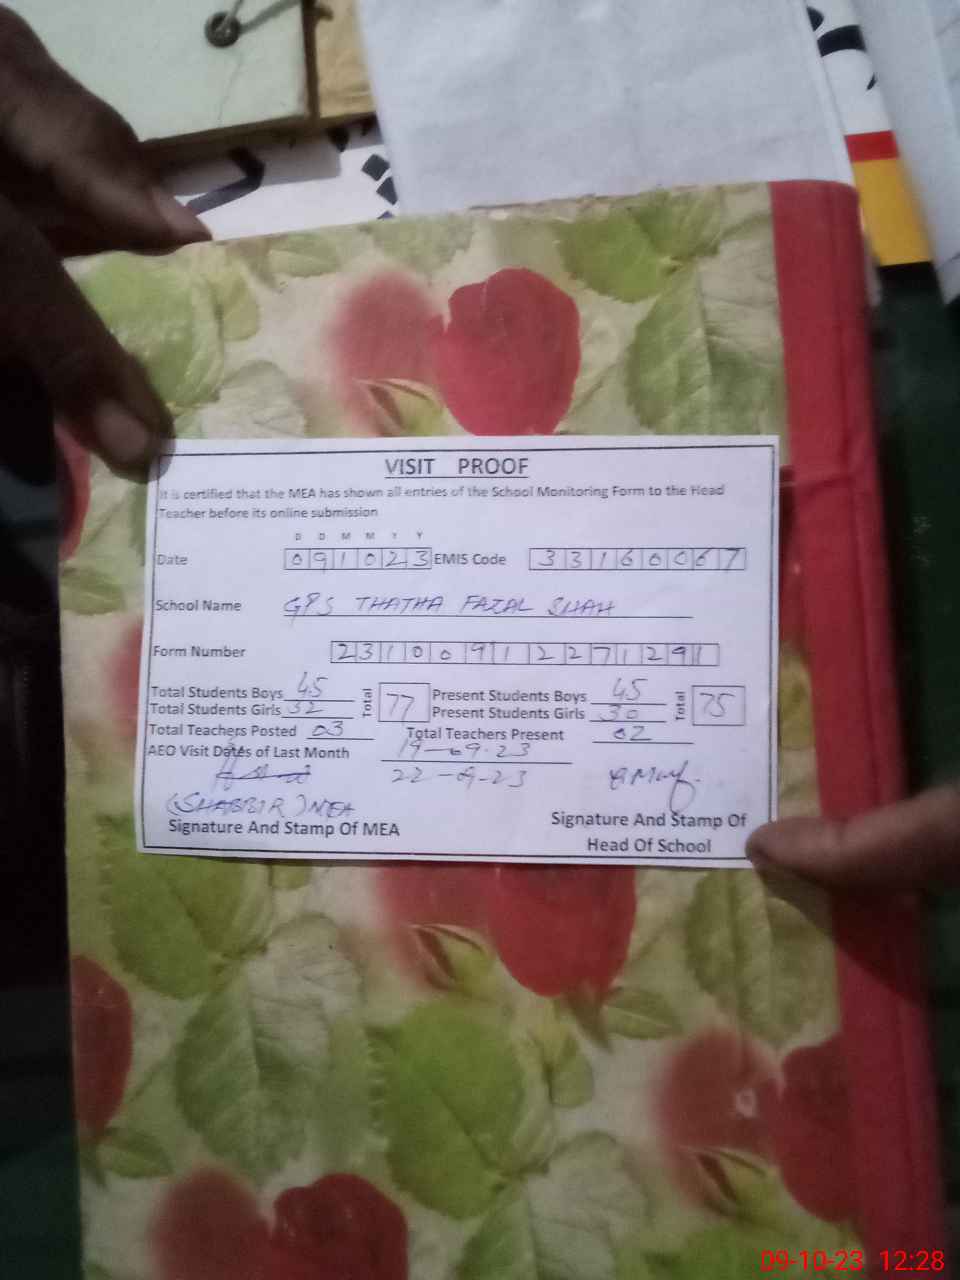 VISIT PROOF
It is certified that the MEA has shown all entries of the School Monitoring Form to the Head
Teacher before its online submission
D D M M Y Y
Date 091023 EMIS Code 33160067
School Name GPS THATHA FAZAL SHAH
Form Number 23100912271291
Total Students Boys 45 Total 77 Present Students Boys 45 Total 75
Total Students Girls 32 Present Students Girls 30
Total Teachers Posted 03 Total Teachers Present 02
AEO Visit Dates of Last Month 19-09-23
22-09-23
(SHABBIR) MEA
Signature And Stamp Of MEA
Signature And Stamp Of
Head Of School
09-10-23 12:28